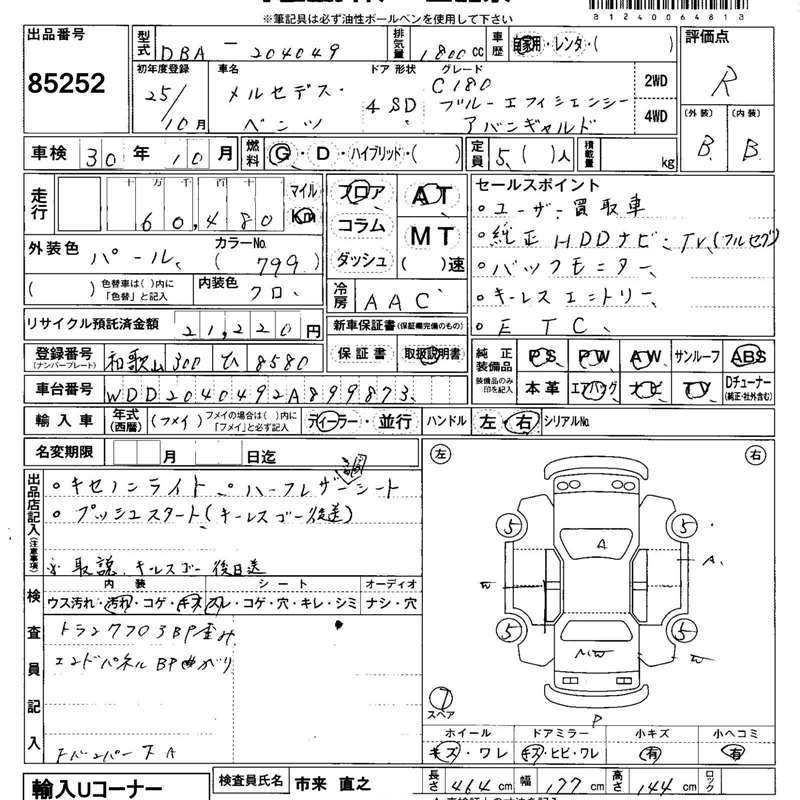 ※筆記具は必ず油性ボールペンを使用して下さい
B1240064818
出品番号 85252
型式 DBA - 204049 排気量 1800 cc 車歴 自家用・レンタ・( ) 評価点 R
初年度登録 25/10月 車名 メルセデス・ベンツ ドア 形状 4 SD グレード C180 ブルーエフィシェンシー アバンギャルド 2WD 4WD
(外装) B (内装) B
車検 30 年 10 月 燃料 G・D・ハイブリッド・( ) 定員 5( )人 積載量 kg
走行 十万千百十 60,480 マイル Km フロア コラム ダッシュ AT MT ( )速
外装色 パール、 カラーNo. ( 799 )
( ) 色替車は( )内に「色替」と記入 内装色 クロ、 冷房 AAC
セールスポイント
・ユーザー買取車
・純正HDDナビ・TV(フルセグ)
・バックモニター、
・キーレスエントリー、
・ETC、
リサイクル預託済金額 21,220 円 新車保証書(保証欄完備のもの)
登録番号 (ナンバープレート) 和歌山 300 ひ 8580 保証書 取扱説明書
純正装備品 装備品のみ印を記入 PS PW AW サンルーフ ABS
本革 エアバッグ ナビ TV Dチューナー (純正・社外含む)
車台番号 WDD2040492A899873
輸入車 年式(西暦) (フメイ) フメイの場合は( )内に「フメイ」と必ず記入 ディーラー・並行 ハンドル 左・右 シリアルNo.
名変期限 月 日迄
出品店記入(注意事項)
・キセノンライト ・ハーフレザーシート
・プッシュスタート(キーレスゴー後送)
※取説、キーレスゴー後日送
検査員記入
内装 シート オーディオ
ウス汚れ・汚れ・コゲ・キズ スレ・コゲ・穴・キレ・シミ ナシ・穴
トランクフロアBP歪み
エンドパネルBP曲がり
Fバンパー下A
左 右
5 5
A A
5 5
P
7 スペア
ホイール キズ・ワレ ドアミラー キズ・ヒビ・ワレ 小キズ 有 小ヘコミ 有
輸入Uコーナー 検査員氏名 市来 直之 長さ 464 cm 幅 177 cm 高さ 144 cm ロック